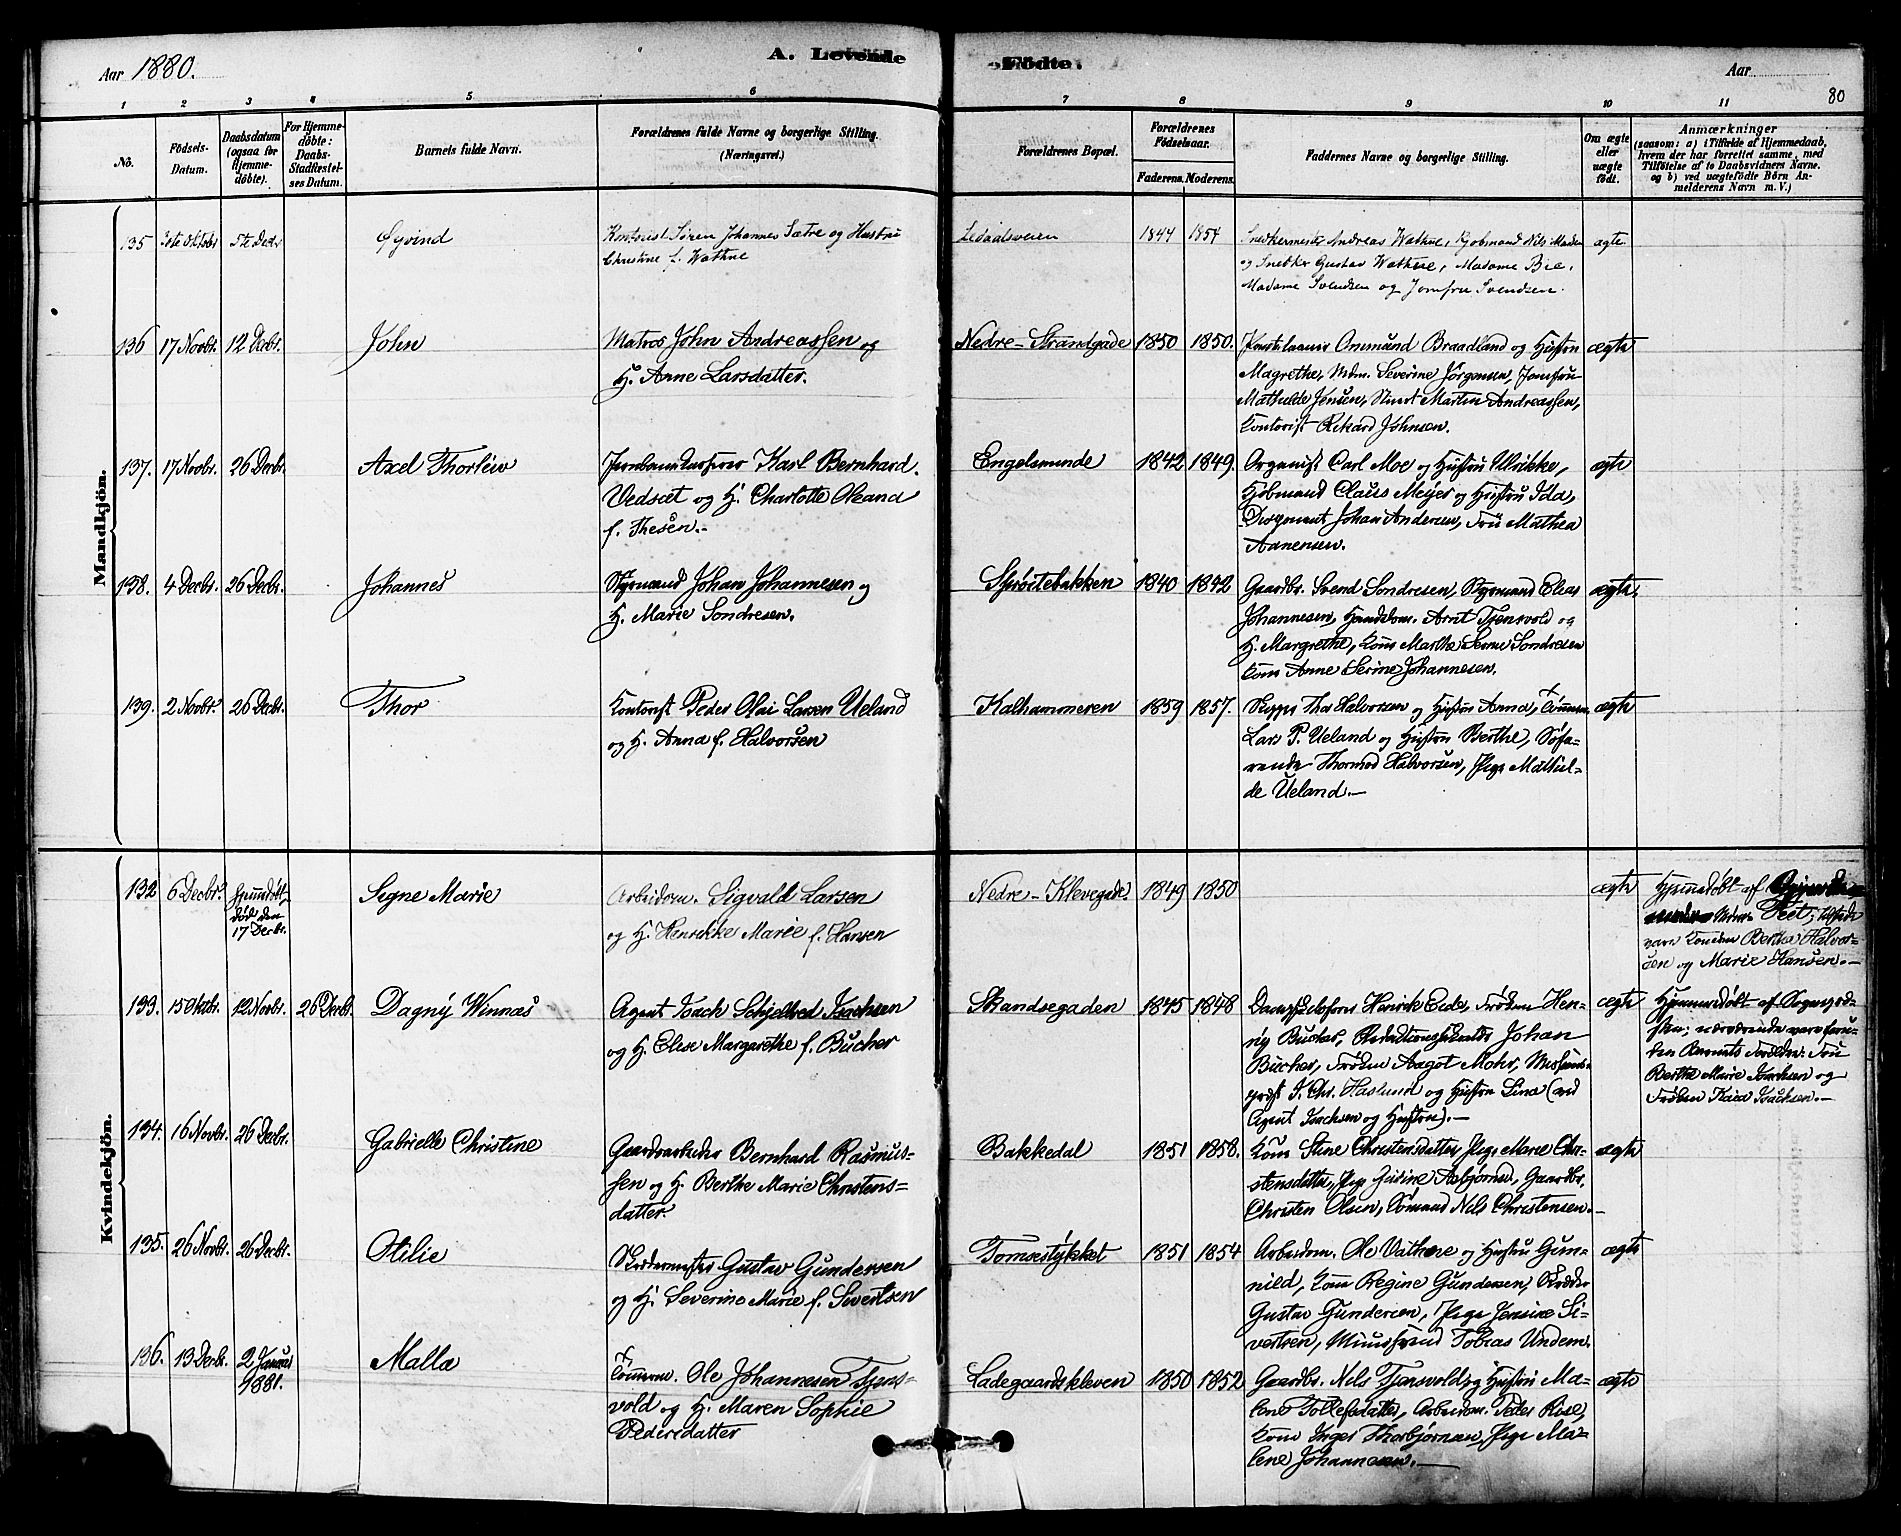 Aar 1880.
A. Levende
Födte.
Aar
80
1 2 3 4 5 6 7 8 9 10 11
No.
Födsels-
Datum.
Daabsdatum
(ogsaa for
Hjemme-
döbte).
For Hjemme-
döbte:
Daabs-
Stadfæstel-
ses Datum.
Barnets fulde Navn.
Forældrenes fulde Navne og borgerlige Stilling.
(Næringsvei.)
Forældrenes Bopæl.
Forældrenes
Födselsaar.
Faderens. Moderens.
Faddernes Navne og borgerlige Stilling.
Om ægte
eller
uægte
födt.
Anmærkninger
(saasom: a) i Tilfælde af Hjemmedaab,
hvem der har forrettet samme, med
Tilföielse af to Daabsvidners Navne.
og b) ved uægtefödte Börn An-
melderens Navn m. V.)
Mandkjön.
135 5te Decbr Øyvind
Kontorist Sören Johannes Sætre og Hustru
Christine f. Wathne
Ledaalsveien 1844 1854
Snedkermester Andreas Wathne, Kjøbmand Nils
og Snedker Gustav Wathne, Madame Bie,
Madame Svendsen og Jomfru Svendsen.
ægte
136 17 Novbr. 12 Decbr. John
Matros John Andreassen og
H. Anne Larsdatter.
Nedre-Strandgade 1850 1850.
Ommund Braadland og Hustru
Magrethe, Mdm. Severine Jörgensen, Jomfru
Mathilde Jensen, Martin Andreassen,
Kontorist Rikard Johnsen.
ægte
137. 17 Novbr. 26 Decbr. Axel Thorleiv
Karl Bernhard
Vedsæt og H. Charlotte Oleana
f. Thesen.
Engelsminde 1842 1849.
Organist Carl Moe og Hustru Ulrikke,
Kjöbmand Claus Meyer og Hustru Ida,
Johan Andersen, Fru Mathea
Aanensen.
ægte
138. 4 Decbr. 26 Decbr. Johannes
Styrmand Johan Johannesen og
H. Marie Sondresen.
Spröitebakken 1840 1842
Gaardbr. Svend Sondresen, Styrmand Elias
Johannesen, Arnt Tjensvold og
H. Margrethe, Kone Marthe Serine Sondresen
Kone Anne Serine Johannesen.
ægte
139. 2 Novbr. 26 Decbr. Thor
Kontorist Peder Olai Larsen Ueland
og H. Anna f. Halvorsen
Kalhammeren 1859 1857.
Skipper Thor Halvorsen og Hustru Anna, Tömmerm.
Lars P. Ueland og Hustru Berthe, Söfa-
rende Thormod Halvorsen, Pige Mathil-
de Ueland.
ægte
Kvindekjön.
132 6 Decbr. Hjemdöbt,
död den
17 Decbr.
Signe Marie
Arbeidsm. Sigvald Larsen
og H. Henrikke Marie f. Hansen
Nedre-Klevegade. 1849 1850
ægte
Hjemdöbt af
Mdm. Feet;
vare Konerne Berthe Halvor-
sen og Marie Hansen.
133. 15 Oktbr. 12 Novbr. 26 Decbr. Dagny Winnæs
Agent Isack Schjelved Isachsen
og H. Elise Margarethe f. Bucher
Skandsegaden 1845 1848
Henrik Eide, Fröken Hen-
rig Bucher, Johan
Bucher, Fröken Aagot Mohr,
J. Chr. Haslund og Hustru Lina (ved
Agent Isachsen og Hustru).
ægte
Hjemmedöbt af Sognepræ-
sten; nærværende vare foru-
den Barnets Forældre: Fru
Berthe Marie Isachsen og
Fröken Kaia Isachsen.
134. 16 Novbr. 26 Decbr. Gabrielle Christine
Gaardarbeider Bernhard Rasmus-
sen og H. Berthe Marie Christens-
datter.
Bakkedal 1851 1858.
Kone Stine Christensdatter, Pige Marie Chri-
stensdatter, Pige Asbjörnsd., Gaardbr.
Christen Olsen, Sömand Nils Christensen.
ægte
135. 26 Novbr. 26 Decbr. Otilie
Skrædermester Gustav Gundersen
og H. Severine Marie f. Sivertsen
Tomsestykket 1851 1854
Arbeidsm. Ole Vathne og Hustru Gun-
nild, Kone Regine Gundersen, Skræder
Gustav Gundersen, Pige Jensine Si-
vertsen, Tobias Undem.
ægte
136. 13 Decbr. 2 Januar
1881.
Malla
Tömmerm. Ole Johannesen Tjens-
vold og H. Maren Sophie
Pedersdatter
Ladegaardskleven 1850 1852
Gaardbr. Nils Tjensvold og Hustru Ma-
lene Tollefsdatter, Arbeidsm. Peder Rise,
Kone Inger Thorbjörnsen, Pige Ma-
lene Johannesen.
ægte